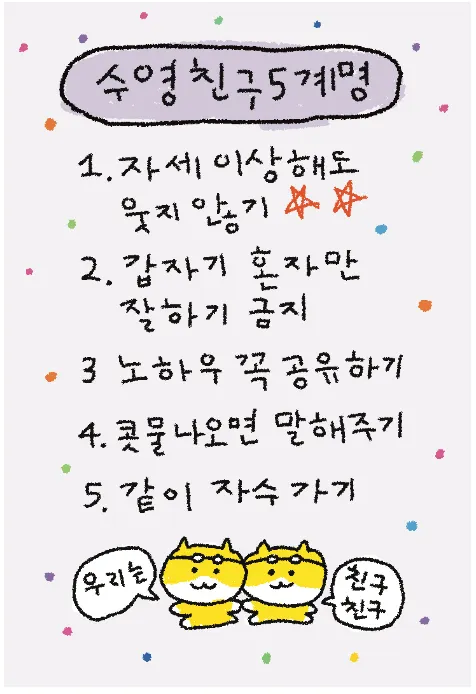 수영친구5계명
1. 자세 이상해도
웃지 않기
2. 갑자기 혼자만
잘하기 금지
3 노하우 꼭 공유하기
4. 콧물나오면 말해주기
5. 같이 자수 가기
우리는
친구
친구